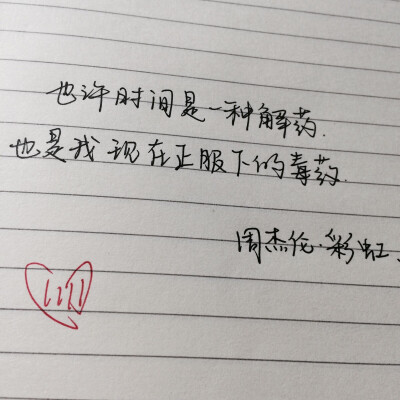 也许时间是一种解药.
也是我现在正服下的毒药.
周杰伦·彩虹.